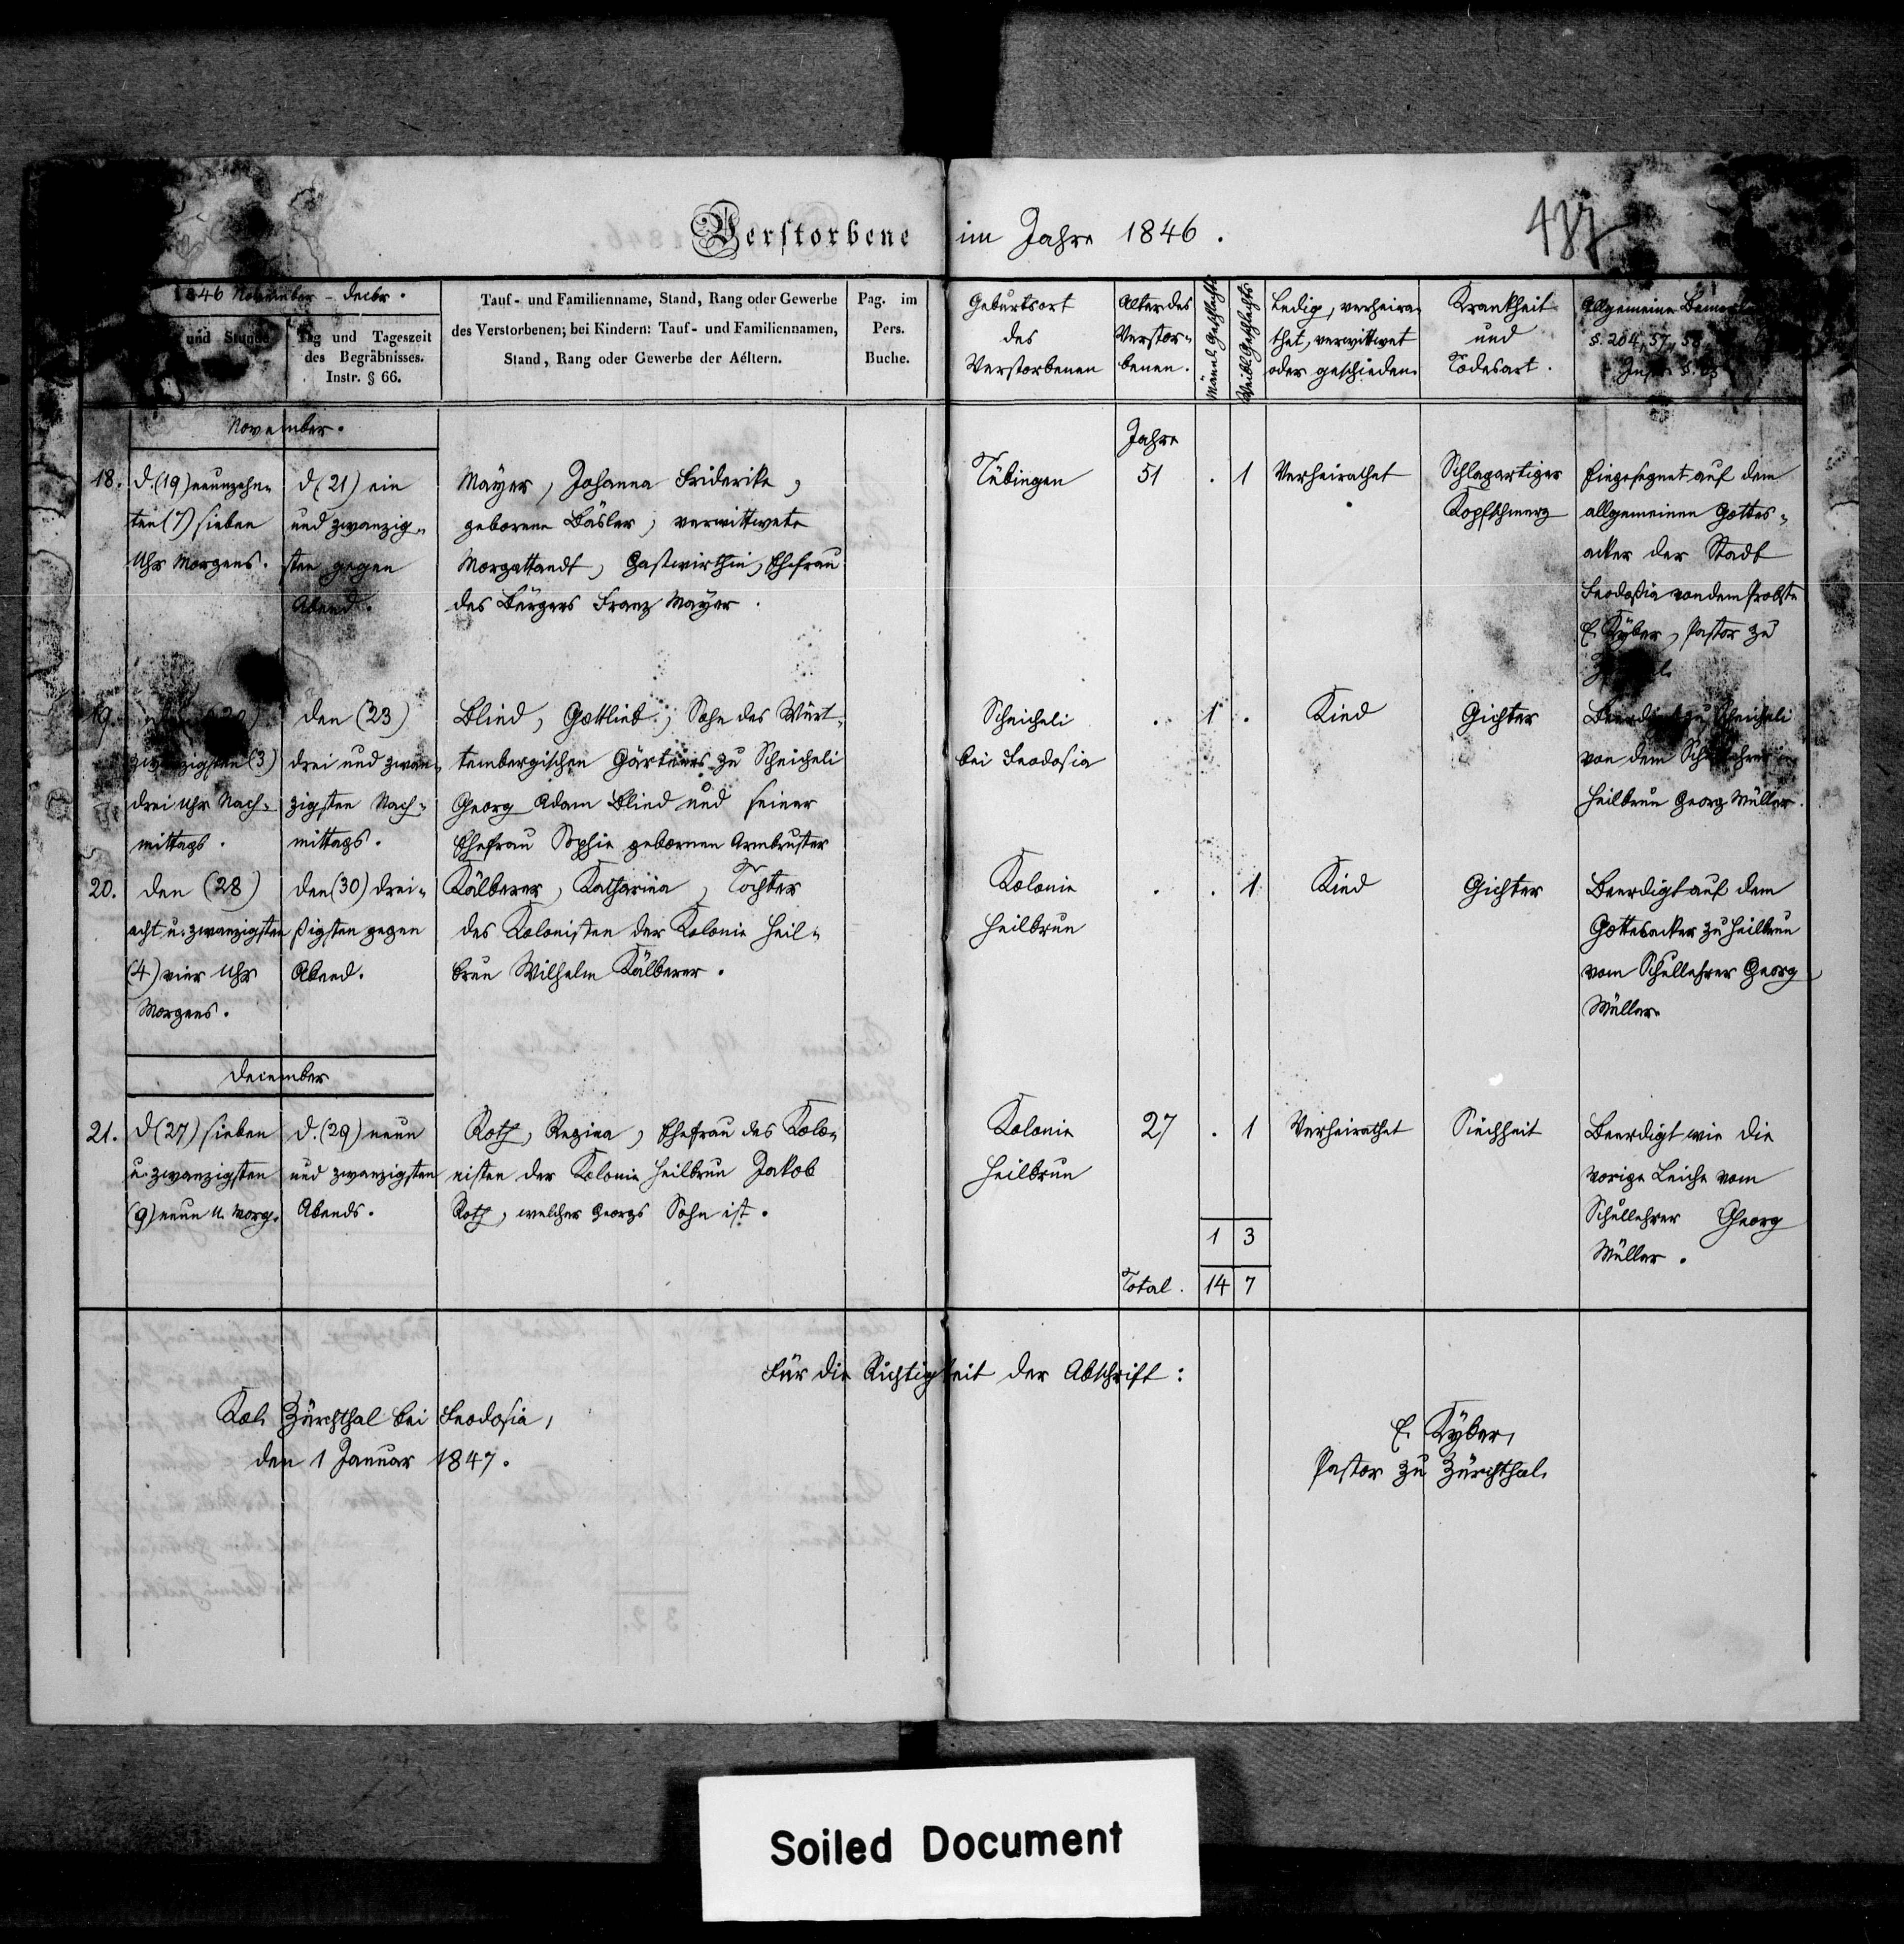 Verstorbene im Jahre 1846.
487
1846 November - Decbr.
und Stunde
Tag und Tageszeit
des Begräbnisses.
Instr. § 66.
Tauf- und Familienname, Stand, Rang oder Gewerbe
des Verstorbenen; bei Kindern: Tauf- und Familiennamen,
Stand, Rang oder Gewerbe der Aéltern.
Pag. im
Pers.
Buche.
Geburtsort
des
Verstorbenen
Alter des
Verstor-
benen.
Männl. Geschlechts
Weibl. Geschlechts
Ledig, verheira-
thet, verwittwet
oder geschieden.
Krankheit
und
Todesart.
Allgemeine
§. 204, 57, 58
November.
18.
d. (19) neunzehn-
ten (7) sieben
Uhr Morgens.
d. (21) ein
und zwanzig-
sten gegen
Abend.
Mayer, Johanna Friderike,
geborene Bäsler, verwittwete
Morgattandt, Gastwirthin, Ehefrau
des Bürgers Franz Mayer.
Tübingen
Jahre
51
.
1
Verheirathet
Schlagartiger
Kopfschmerz
Eingesegnet auf dem
allgemeinen Gottes-
acker der Stadt
Feodosia von dem Probste
E. Kyber, Pastor zu
19.
zwanzigsten (3)
drei Uhr Nach-
mittags.
den (23)
drei und zwan-
zigsten Nach-
mittags.
Blind, Gottlieb, Sohn des Würt-
tembergischen Gärtners zu Scheicheli
Georg Adam Blind und seiner
Ehefrau Sophie gebornen Armbruster
Scheicheli
bei Feodosia
.
1
.
Kind
Gichter
Beerdigt zu Scheicheli
von dem Schullehrer
Heilbrun Georg Müller.
20.
den (28)
acht u. zwanzigsten
(4) vier Uhr
Morgens.
den (30) drei-
ßigsten gegen
Abend.
Kälberer, Katharina, Tochter
des Kolonisten der Kolonie Heil-
brun Wilhelm Kälberer.
Kolonie
Heilbrun
.
.
1
Kind
Gichter
Beerdigt auf dem
Gottesacker zu Heilbrun
vom Schullehrer Georg
Müller.
December
21.
d. (27) sieben
u. zwanzigsten
(9) neun U. Morg.
d. (29) neun
und zwanzigsten
Abends.
Roth, Regina, Ehefrau des Kolo-
nisten der Kolonie Heilbrun Jakob
Roth, welcher Georgs Sohn ist.
Kolonie
Heilbrun
27
.
1
Verheirathet
Siechheit
Beerdigt wie die
vorige Leiche vom
Schullehrer Georg
Müller.
1 3
Total. 14 7
Für die Richtigkeit der Abschrift:
Kol. Zürchthal bei Feodosia,
den 1 Januar 1847.
E. Kyber,
Pastor zu Zürchthal.
Soiled Document